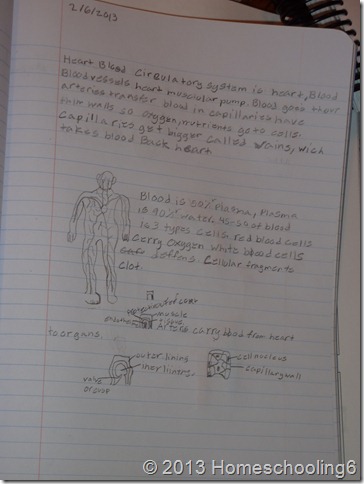 2/6/2013
Heart Blood Circulatory system is heart, Blood
Blood vessels heart muscular pump. Blood goes thour
arteries transfer blood in capillaries have
thin walls so oxygen, nutrients go to cells.
Capillaries get bigger called Vains, wich
takes blood Back heart
Blood is 55% Plasma, Plasma
is 90% water, 45% of blood
is 3 types cells. red blood cells
Carry Oxygen white blood cells
deffens. Cellular fragments
Clot.
muscle
Arteris carry blood from heart
to organs.
outer lining
inor lining
valve
cell nuclous
capillary wall
© 2013 Homeschooling6